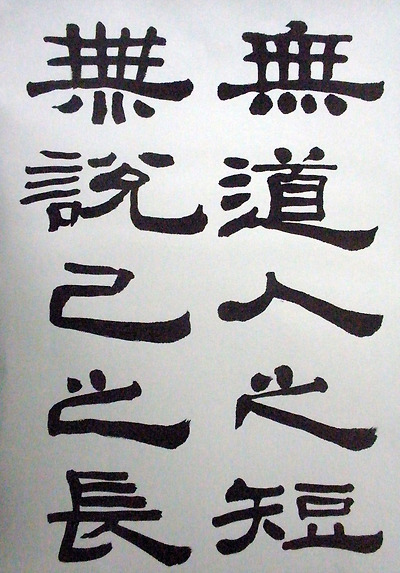 無道人之短
無説己之長